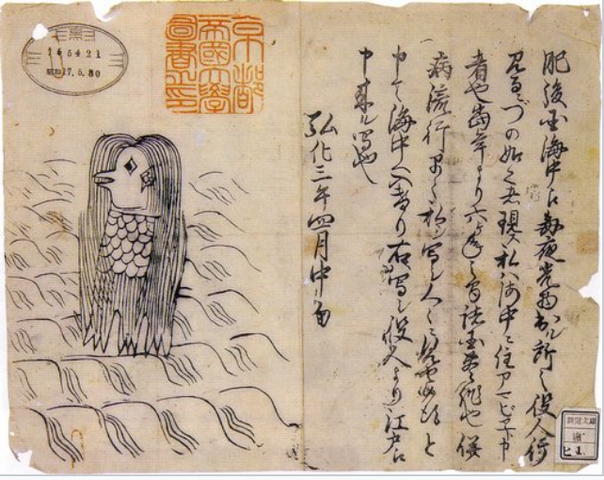 肥後国海中江毎夜光物出ル所之役人行
見るニづの如之者現ス私ハ海中ニ住アマビヱト申
者也當年より六ヶ年之間諸国豊作也併
病流行早々私写シ人々ニ見せ候得と
申て海中へ入けり右写シ役人より江戸江
申来ル写也
弘化三年四月中旬
京都
帝國大學
圖書之印
昭和17.5.30
新聞文庫